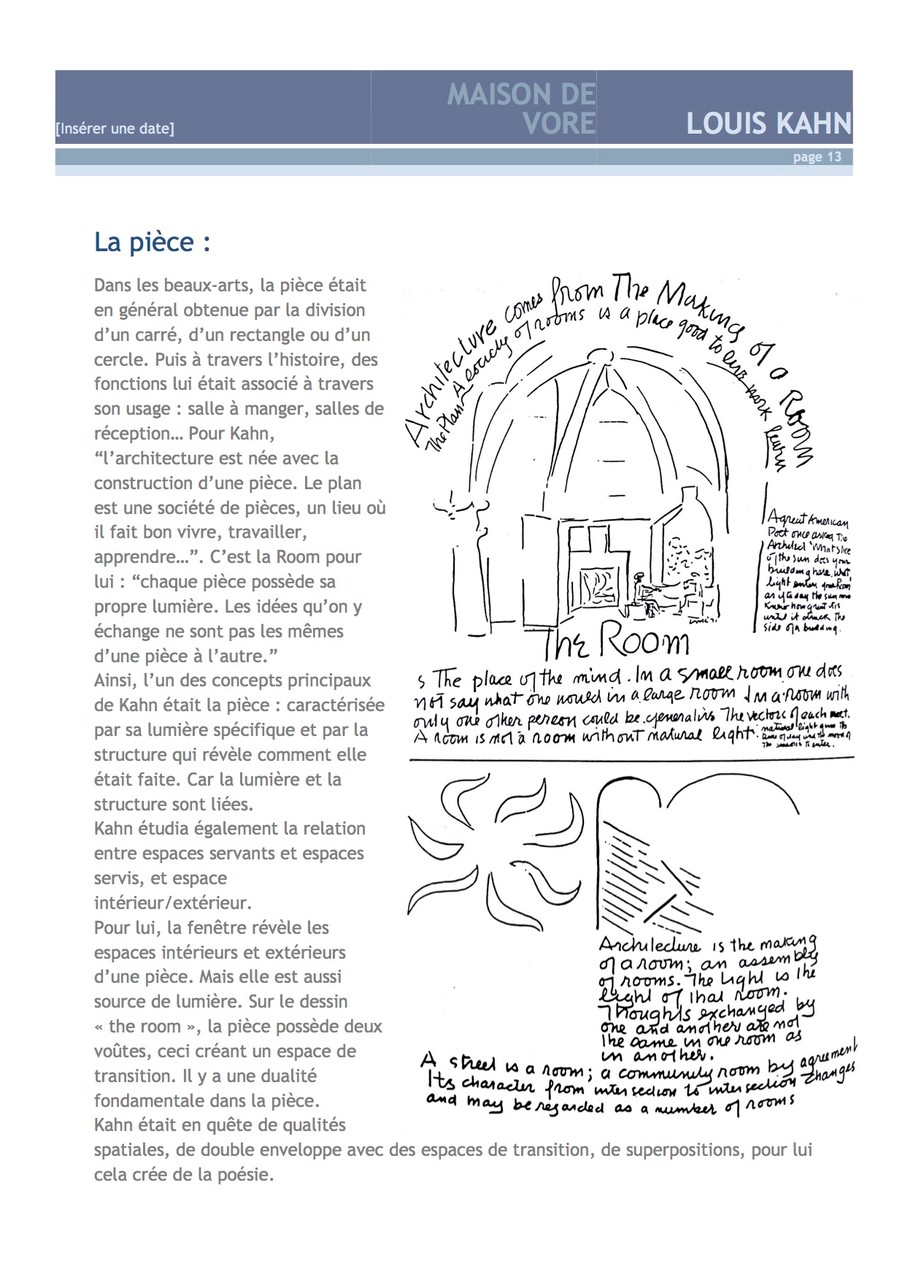 [Insérer une date]
MAISON DE
VORE
LOUIS KAHN
page 13
La pièce :
Dans les beaux-arts, la pièce était
en général obtenue par la division
d’un carré, d’un rectangle ou d’un
cercle. Puis à travers l’histoire, des
fonctions lui était associé à travers
son usage : salle à manger, salles de
réception… Pour Kahn,
“l’architecture est née avec la
construction d’une pièce. Le plan
est une société de pièces, un lieu où
il fait bon vivre, travailler,
apprendre…”. C’est la Room pour
lui : “chaque pièce possède sa
propre lumière. Les idées qu’on y
échange ne sont pas les mêmes
d’une pièce à l’autre.”
Ainsi, l’un des concepts principaux
de Kahn était la pièce : caractérisée
par sa lumière spécifique et par la
structure qui révèle comment elle
était faite. Car la lumière et la
structure sont liées.
Kahn étudia également la relation
entre espaces servants et espaces
servis, et espace
intérieur/extérieur.
Pour lui, la fenêtre révèle les
espaces intérieurs et extérieurs
d’une pièce. Mais elle est aussi
source de lumière. Sur le dessin
« the room », la pièce possède deux
voûtes, ceci créant un espace de
transition. Il y a une dualité
fondamentale dans la pièce.
Kahn était en quête de qualités
spatiales, de double enveloppe avec des espaces de transition, de superpositions, pour lui
cela crée de la poésie.
Architecture comes from The Making of a Room
The Plan A society of rooms is a place good to live work learn
A great American
Poet once asked The
Architect 'What slice
of the sun does your
building have, what
light enters your Room'
as if to say the sun never
knew how great it is
until it struck the
side of a building.
The Room
s The place of the mind. In a small room one does
not say what one would in a large room In a room with
only one other person could be generative The vectors of each meet.
A room is not a room without natural light.
natural light gives the
time of day and the mood of
The seasons to enter.
Architecture is the making
of a room; an assembly
of rooms. The light is the
light of that room.
Thoughts exchanged by
one and another are not
the same in one room as
in another.
A street is a room; a community room by agreement
Its character from intersection to intersection changes
and may be regarded as a number of rooms